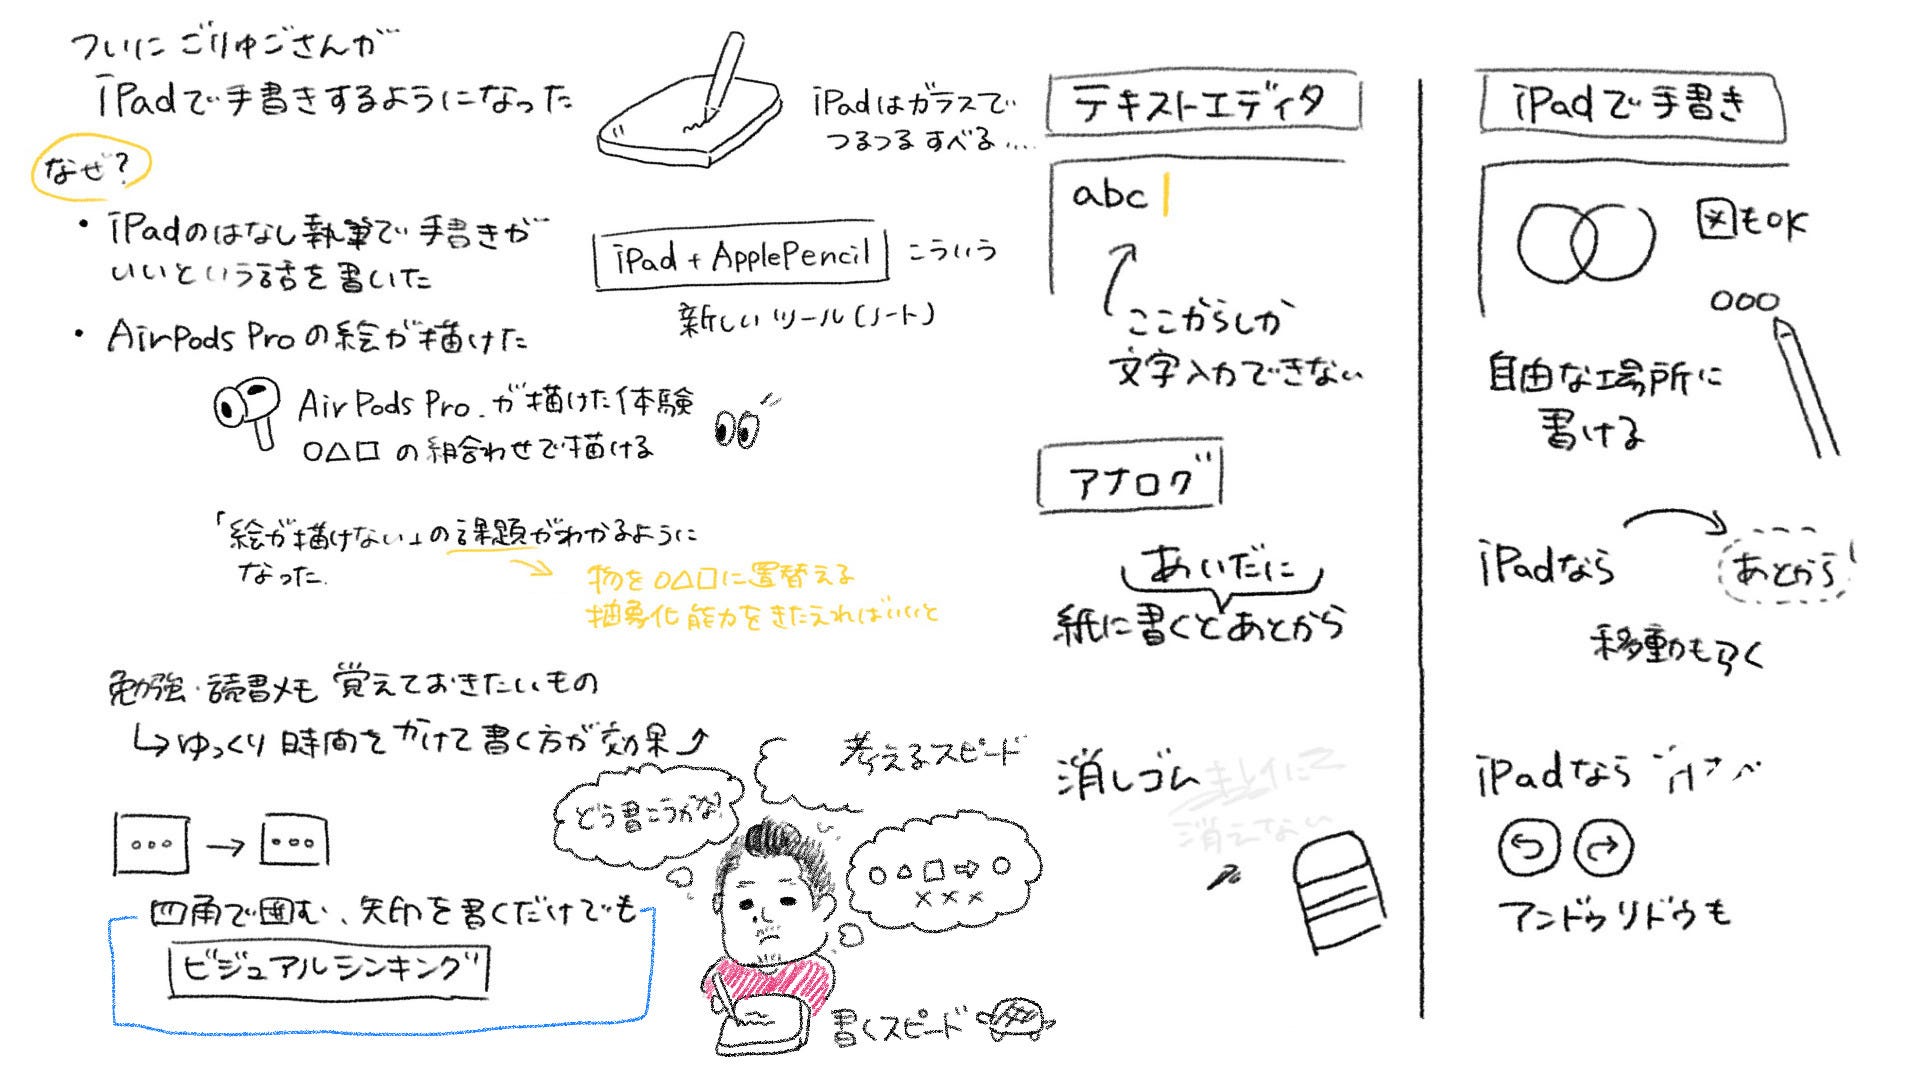 ついにごりゅごさんが
iPadで手書きするようになった
なぜ?
・iPadのはなし執筆で手書きが
いいという話を書いた
・AirPods Proの絵が描けた
AirPods Pro.が描けた体験
○△□の組合わせで描ける
「絵が描けない」の課題がわかるように
なった.
物を○△□に置替える
抽象化能力をきたえればいいと
勉強・読書メモ 覚えておきたいもの
↳ゆっくり時間をかけて書く方が効果⤴
○○○→○○○
四角で囲む、矢印を書くだけでも
ビジュアルシンキング
iPadはガラスで
つるつるすべる....
iPad + ApplePencil こういう
新しいツール(ノート)
考えるスピード
どう書こうかな?
○△□⇨○
×××
書くスピード
テキストエディタ
abc
ここからしか
文字入力できない
アナログ
あいだに
紙に書くとあとから
消しゴム キレイに
消えない
iPadで手書き
図もOK
○○○
自由な場所に
書ける
iPadなら あとから
移動もらく
iPadなら
アンドゥリドゥも